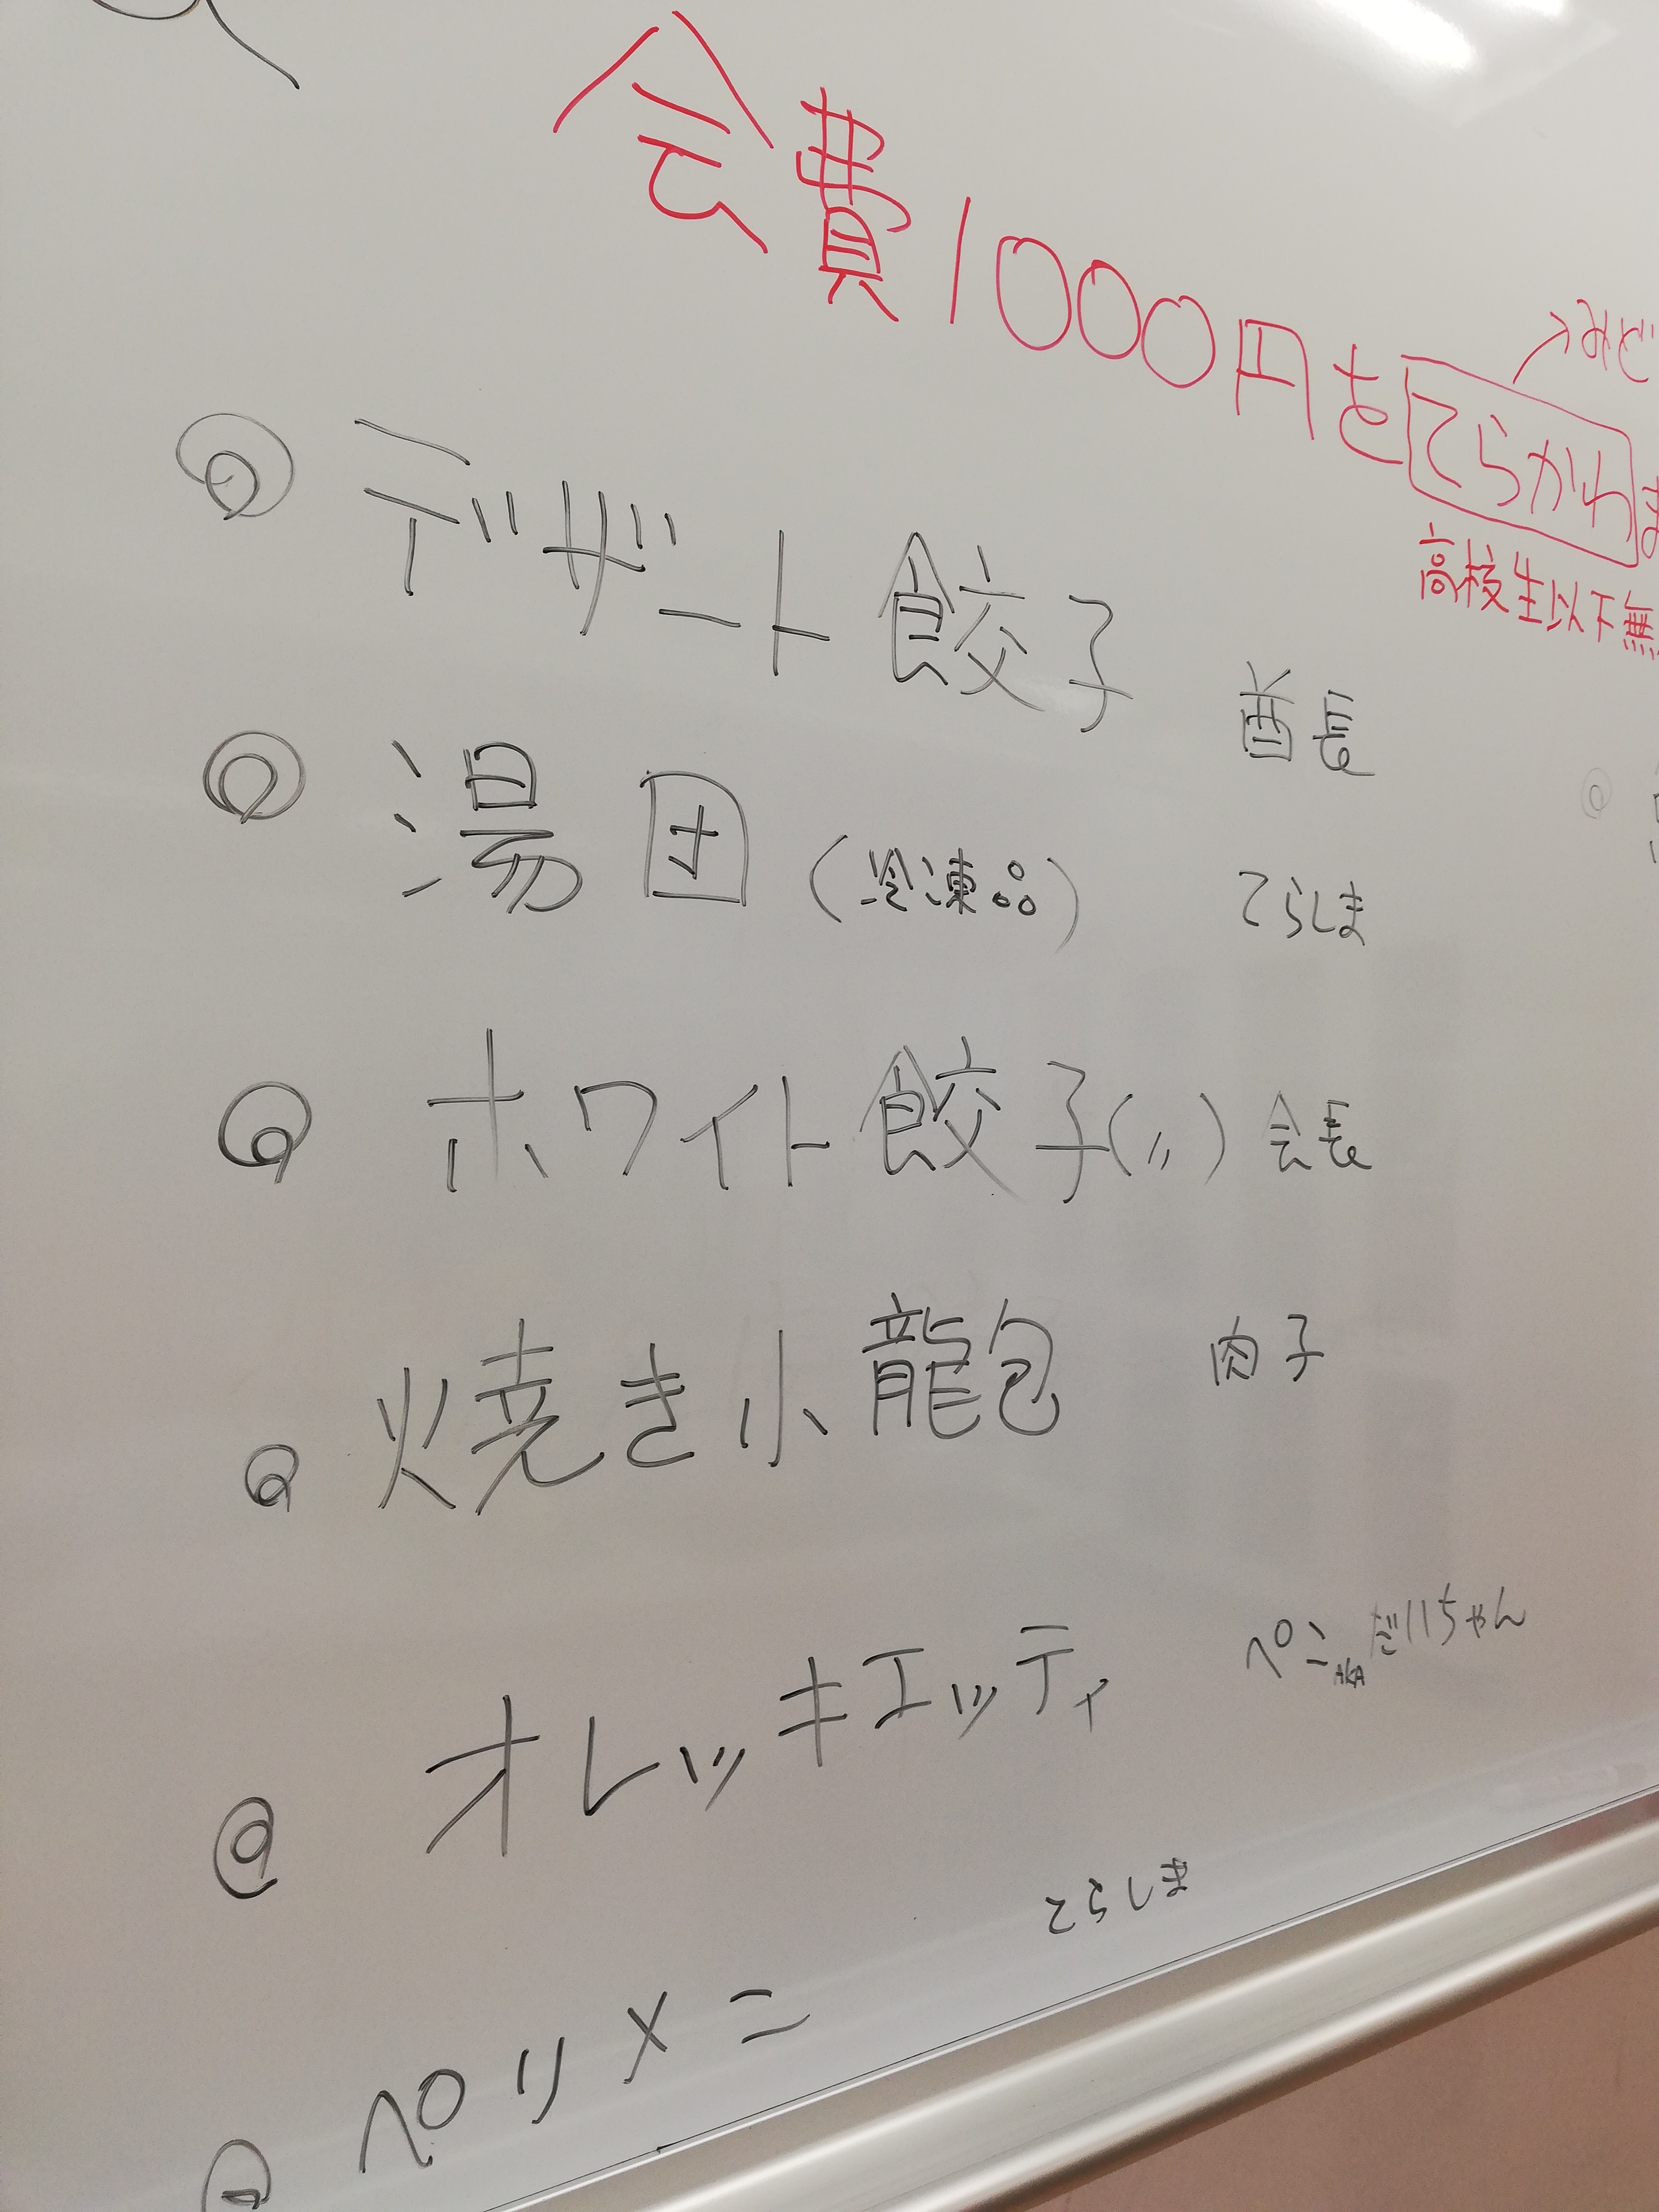 会費1000円をてらかわま
→みど
高校生以下無
◎ デザート餃子 酋長
◎ 湯団(冷凍品) てらしま
◎ ホワイト餃子(〃) 会長
◎ 焼き小龍包 肉子
◎ オレッキエッティ ペンAKAだいちゃん
◎ ペリメニ てらしま